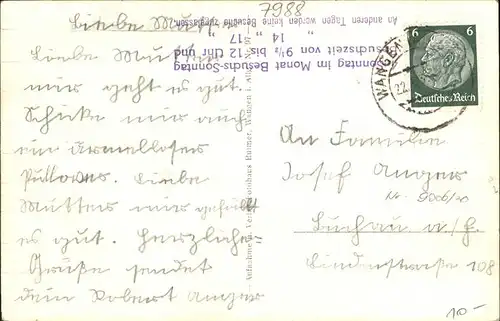 7988
Liebe Mutter
Liebe Mutter
mir geht es gut
Schicke mir auch
ein ärmelloser
Pullover. Liebe
Mutter mir gefällt
es gut. Herzliche
Grüße sendet
dein Robert Anger
Sonntag im Monat Besuchs-Sonntag
Besuchszeit von 9½ bis 12 Uhr und
" 14 " 17 "
An anderen Tagen werden keine Besuche zugelassen.
Aufnahme u. Verlag Fotohaus Rummer, Wangen i. Allg.
WANGEN
22.
6 6
Deutsches Reich
An Familie
Josef Anger
Nr. 9006/20
Buchau a/F.
Lindenstraße 108
10.-